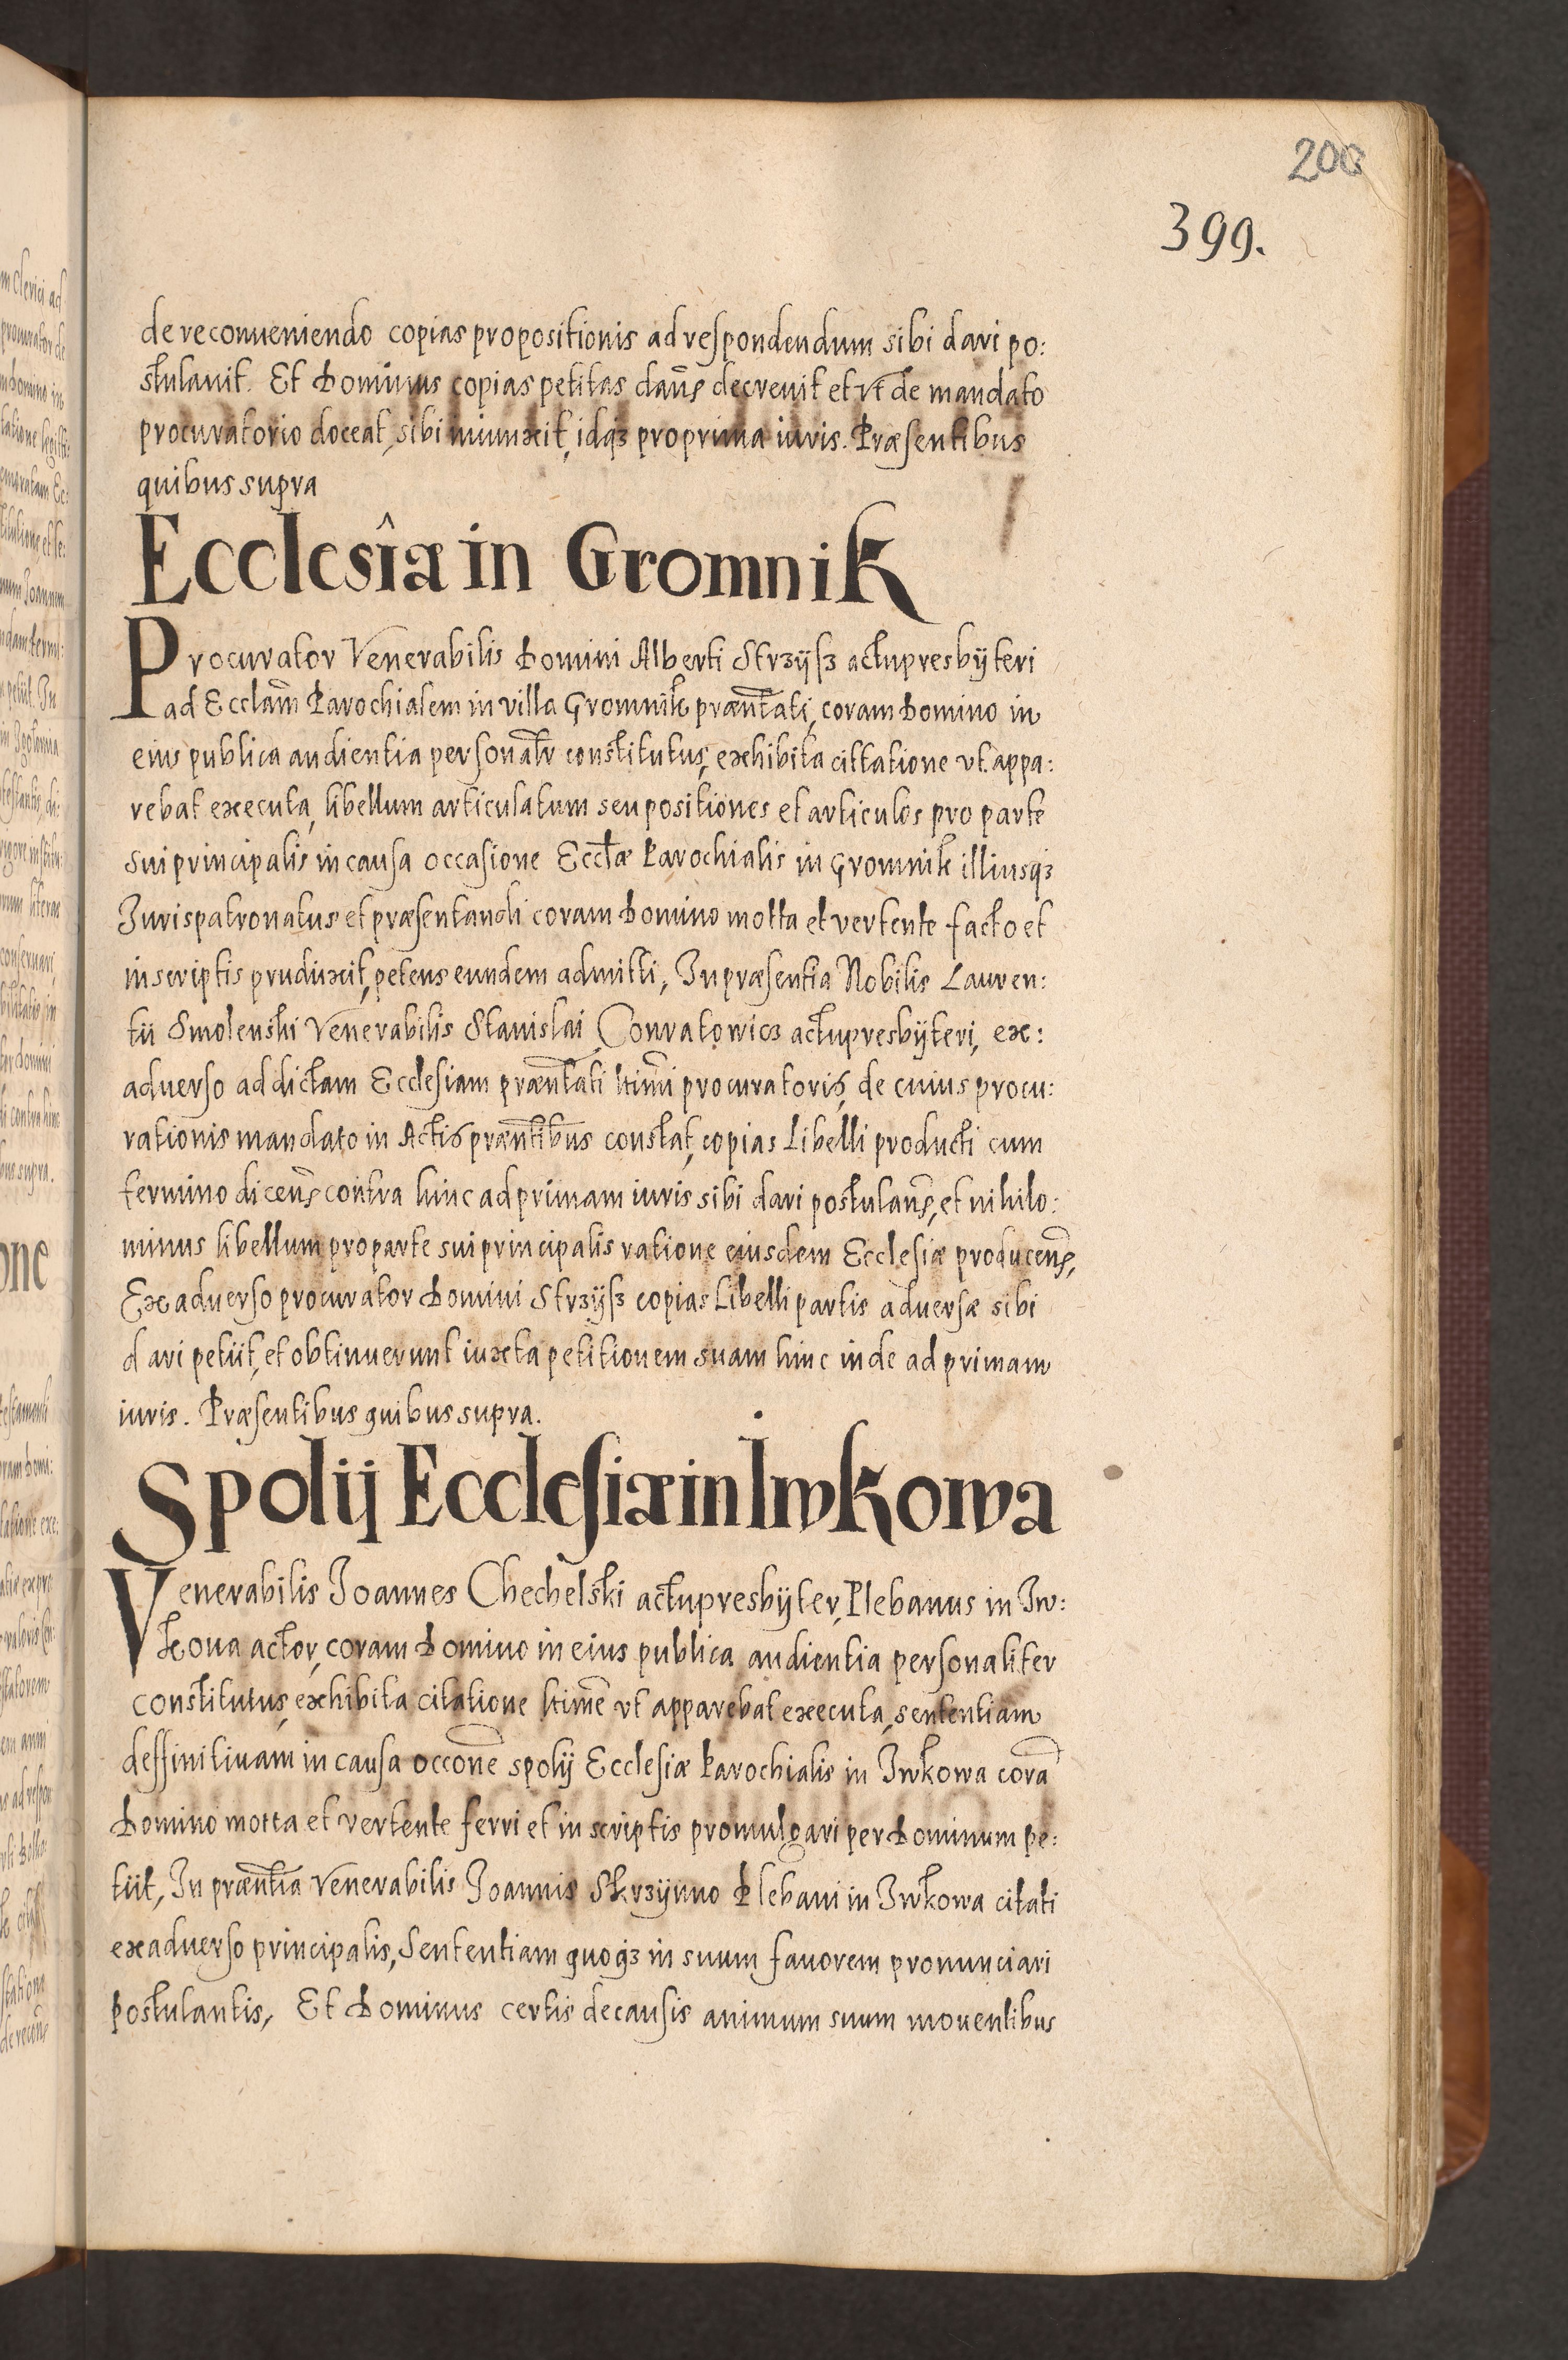 200
399.
de reconueniendo copias propositionis ad respondendum sibi dari po:
stulauit. Et Dominus copias petitas dan̄s decreuit et vt de mandato
procuratorio doceat, sibi iniunxit, idqꝫ pro prima iuris. Præsentibus
quibus supra
Ecclesîæ in Gromnik
Procurator Venerabilis Domini Alberti Strzÿsz actupresbÿteri
ad Ecclām Parochialem in villa Gromnik præn̄tati, coram Domino in
eius publica audientia personalr̄ constitutus, exhibita cittatione vt appa:
rebat executa, libellum articulatum seu positiones et articulos pro parte
sui principalis in causa occasione Eccl̄æ Parochialis in Gromnik illiusqꝫ
Jurispatronatus et præsentandi coram Domino motta et vertente facto et
in scriptis prudixit, petens eundem admitti, In præsentia Nobilis Lauren:
tii Smolenski Venerabilis Stanislai Conratowicz actupresbÿteri, ex:
aduerso ad dictam Ecclesiam præn̄tati ltimi procuratoris, de cuius procu:
rationis mandato in Actis præn̄tibus constat, copias Libelli producti cum
termino dicen̄ contra hinc ad primam iuris sibi dari postulan̄s, et nihilo:
minus libellum pro parte sui principalis ratione eiusdem Ecclesiæ producen̄s,
Ex aduerso procurator Domini Strzÿsz copias Libelli partis aduersæ sibi
dari petiit, et obtinuerunt iuxta petitionem suam hinc inde ad primam
iuris. Præsentibus quibus supra.
Spolij Ecclesiæ in Iwkowa
Venerabilis Joannes Chechelski actupresbÿter, Plebanus in Iw:
koua actor, coram Domino in eius publica audientia personaliter
constitutus, exhibita citatione ltime vt apparebat executa, sententiam
deffinitiuam in causa occōne spolij Ecclesiæ Parochialis in Iwkowa corā
Domino motta et vertente ferri et in scriptis promulgari per Dominum pe:
tiit, In præn̄tia Venerabilis Joannis Skrzÿnno Plebani in Iwkowa citati
ex aduerso principalis, Sententiam quoqꝫ in suum fauorem pronunciari
postulantis, Et Dominus certis de causis animum suum mouentibus